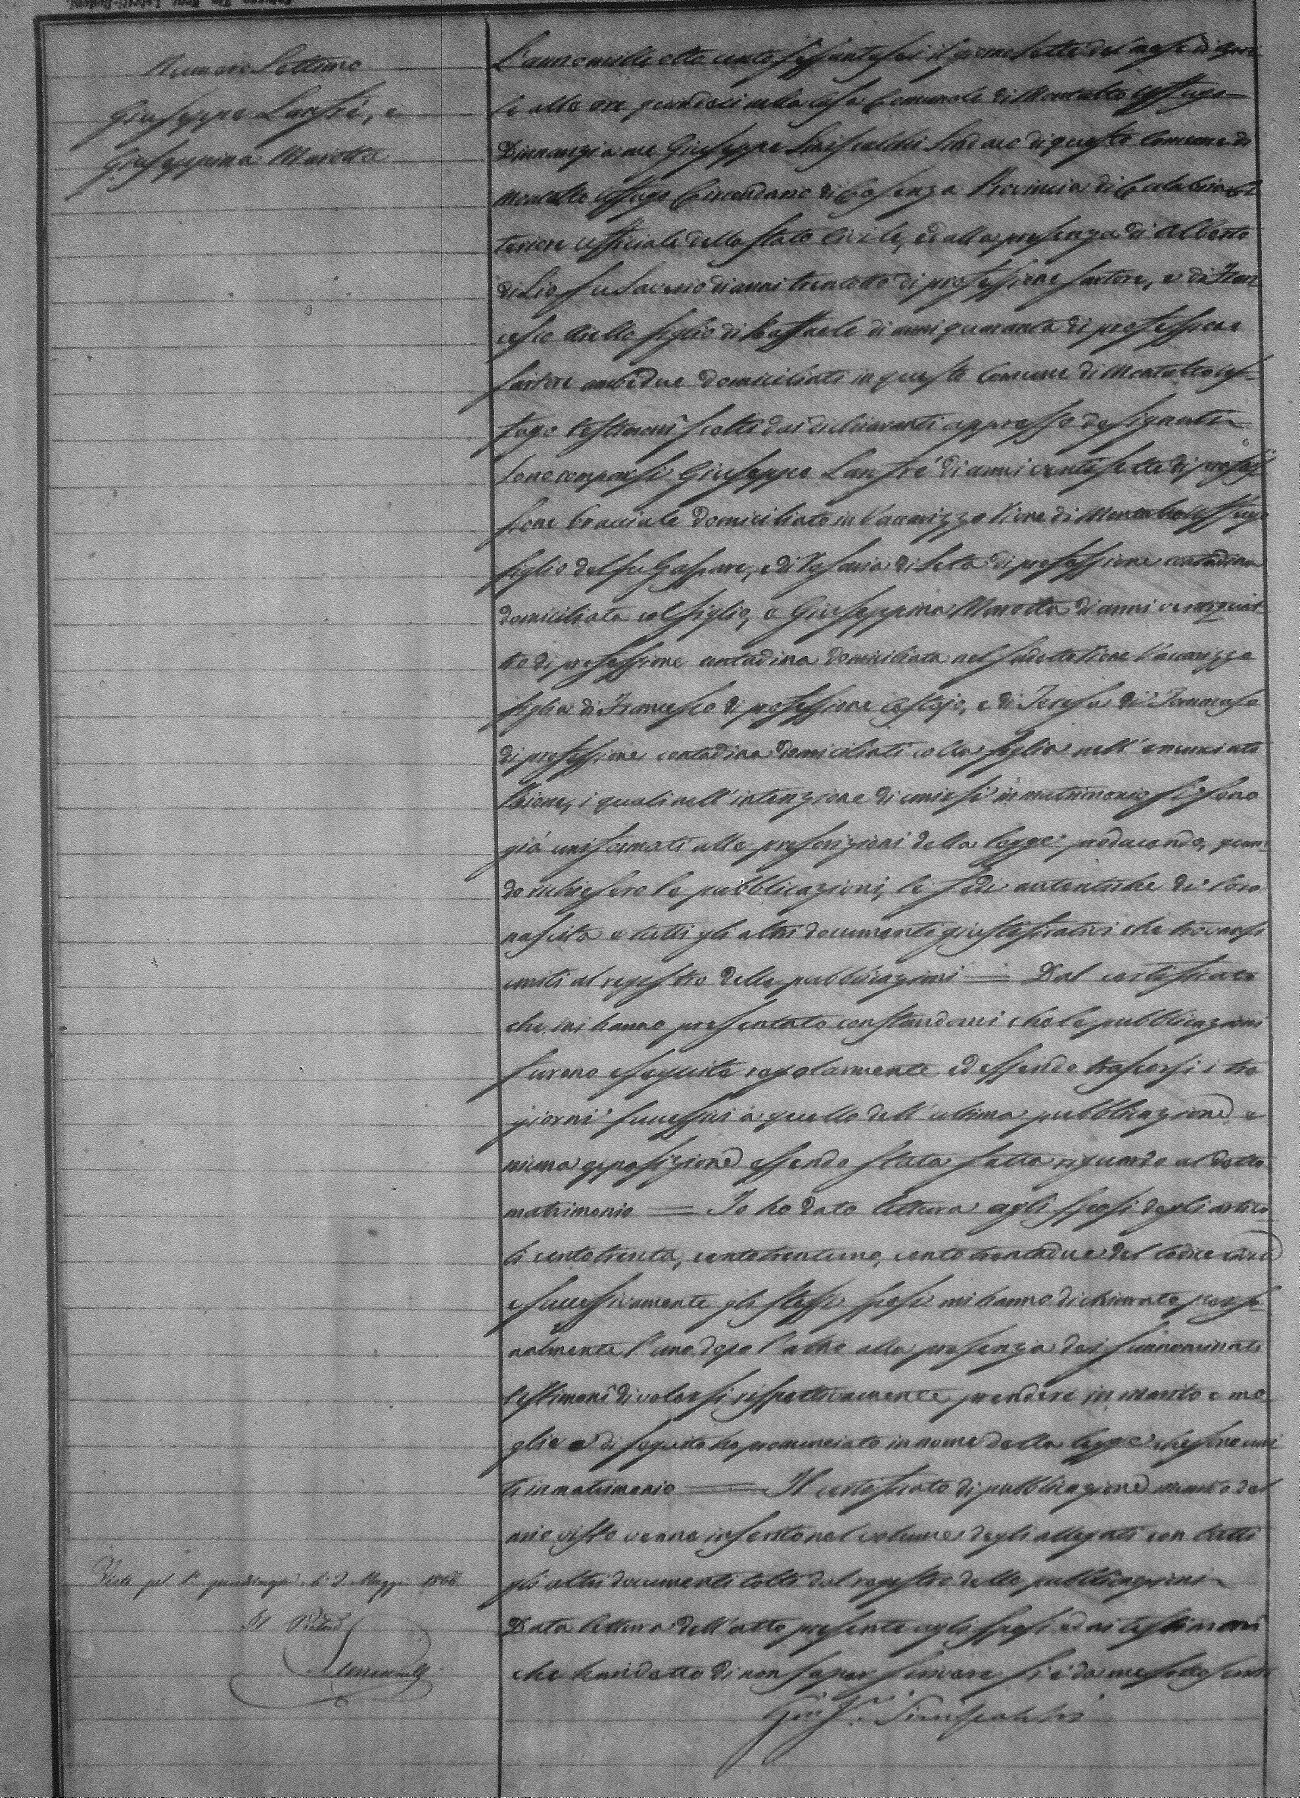 Numero Settimo
Giuseppe Lanfré, e
Giuseppina Marotta
L'anno mille otto cento sessantasei il giorno sette del mese di Apri-
le alle ore quindici nella casa Comunale di Montalto Uffugo
Dinnanzi a me Giuseppe Siniscalchi Sindaco di questo Comune di
Montalto Uffugo Circondario di Cosenza Provincia di Calabria Ci-
teriore uffiziale dello Stato Civile, ed alla presenza di Alberto
di Lio fu Saverio di anni trentotto di professione sartore, e di Fran-
cesco Aiello figlio di Raffaele di anni quaranta di professione
sartore ambedue domiciliati in questo Comune di Montalto Uf-
fugo testimoni scelti dai dichiaranti appresso designati
sono comparsi Giuseppe Lanfré di anni ventisette di profes-
sione bracciale domiciliato in Vaccarizzo Rione di Montalto Uffugo
figlio del fu Gaspare, e di Rosaria di Seta di professione contadina
domiciliata col figlio, e Giuseppina Marotta di anni venquat-
tro di professione contadina domiciliata nel sudetto Rione Vaccarizzo
figlia di Francesco di professione, e di Teresa di Tommaso
di professione contadina domiciliati colla figlia nell'enunciato
Rione, i quali nell'intenzione di unirsi in matrimonio si sono
già uniformati alle prescrizioni della legge producendo, quan-
do richiesero le pubblicazioni, le fedi autentiche di loro
nascita e tutti gli altri documenti giustificativi che trovansi
uniti al registro delle pubblicazioni = Dal certificato
che mi hanno presentato constandomi che le pubblicazioni
furono eseguite regolarmente ed essendo trascorsi i tre
giorni successivi a quello dell'ultima pubblicazione e
niuna opposizione essendo stata fatta riguardo al detto
matrimonio = Io ho dato lettura agli sposi degli artico-
li centotrenta, centotrentuno, cento trentadue del Codice civile
e successivamente gli stessi sposi mi hanno dichiarato perso-
nalmente l'uno dopo l'altro alla presenza dei sunnominati
testimoni di volersi rispettivamente prendere in marito e mo-
glie e di seguito ho pronunciato in nome della legge che sono uni-
ti in matrimonio = Il certificato di pubblicazione munito del
mio visto venne inserito nel volume degli allegati con tutti
gli altri documenti tolti dal registro delle pubblicazioni
Data lettura dell'atto presente agli sposi ed ai testimoni
che han detto di non saper scrivere si è da me sottoscritto
Gius. Siniscalchi
Visto pel 1ª quindicina li 2 Maggio 1866
Il Pretore